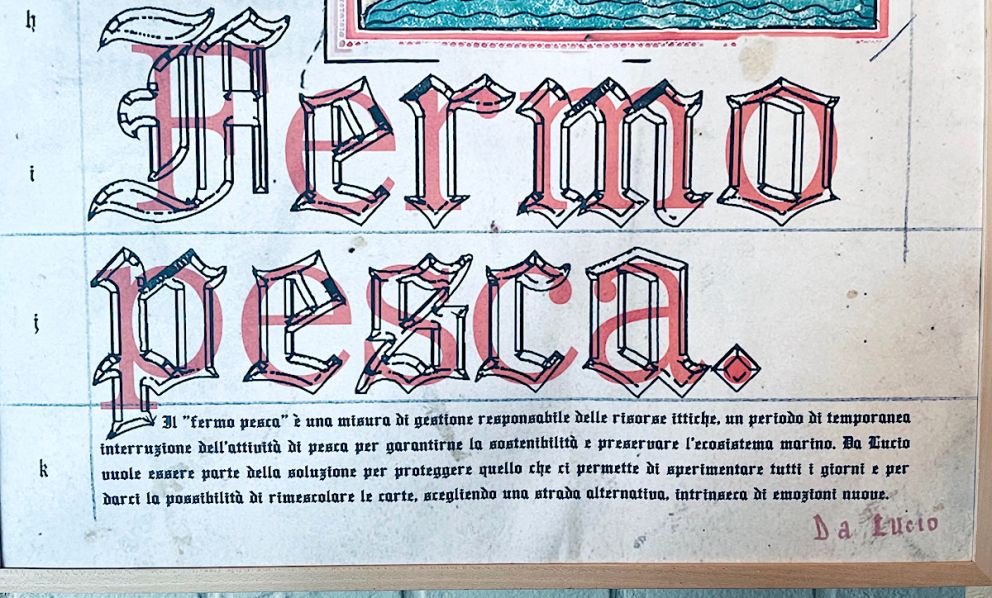 h
Fermo
i
pesca.
j
Il "fermo pesca" è una misura di gestione responsabile delle risorse ittiche, un periodo di temporanea
interruzione dell'attività di pesca per garantirne la sostenibilità e preservare l'ecosistema marino. Da Lucio
vuole essere parte della soluzione per proteggere quello che ci permette di sperimentare tutti i giorni e per
k
darci la possibilità di rimescolare le carte, scegliendo una strada alternativa, intrinseca di emozioni nuove.
Da Lucio